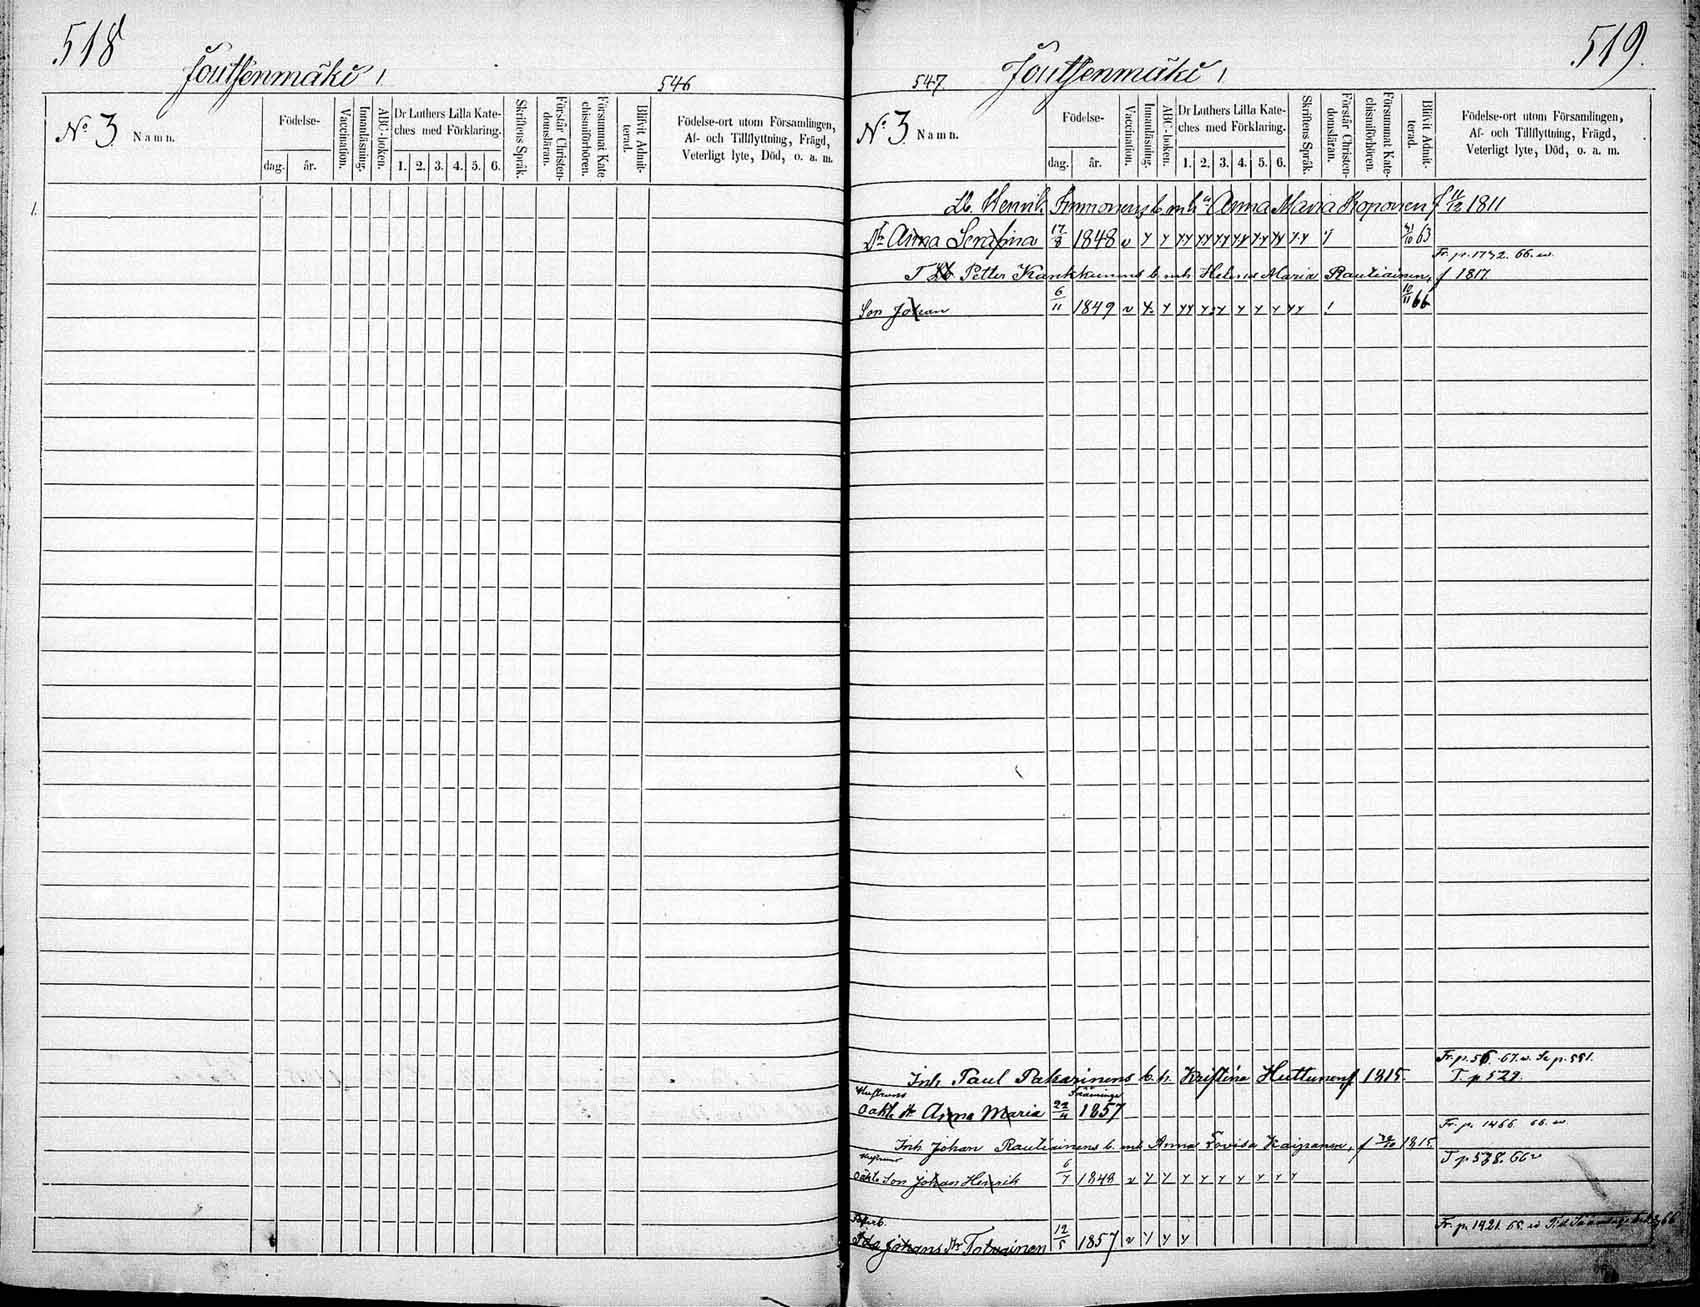 518
Joutsenmäki 1
546
No 3 Namn.
Födelse-
dag. år.
Vaccination.
Innanläsning.
ABC-boken.
Dr Luthers Lilla Kate-
ches med Förklaring.
1. 2. 3. 4. 5. 6.
Skriftens Språk.
Förstår Christen-
domsläran.
Försummat Kate-
chismiförhören.
Blifvit Admit-
terad.
Födelse-ort utom Församlingen,
Af- och Tillflyttning, Frägd,
Veterligt lyte, Död, o. a. m.
1.
547.
Joutsenmäki 1
519.
No 3 Namn.
Födelse-
dag. år.
Vaccination.
Innanläsning.
ABC-boken.
Dr Luthers Lilla Kate-
ches med Förklaring.
1. 2. 3. 4. 5. 6.
Skriftens Språk.
Förstår Christen-
domsläran.
Försummat Kate-
chismiförhören.
Blifvit Admit-
terad.
Födelse-ort utom Församlingen,
Af- och Tillflyttning, Frägd,
Veterligt lyte, Död, o. a. m.
Lb. Henrik Immonens b. mh Anna Maria Koponen f 1811
Dr Anna Serafina 17/8 1848 v 63
Fr. p. 1732. 66. w.
T Petter Kankkunens b. mh Helena Maria Rautiainen, f 1817
Son Johan 6/11 1849 v 66
Fr. p. 56. 67. w. Se p. 581.
Inh Paul Pakarinens b. h. Kristina Huttunen f 1815. T p 529.
Hustruns
oäkta dr Anna Maria 22/11 1857
Fr. p. 1466 66. w
Inh Johan Rautiainens b. mh Anna Lovisa Kaipanen, f 1815.
T p 538. 66
oäkta Son Johan Henrik 6/7 1848 v
Fr. p. 1421. 65. w
Johans dr Tolvainen 12/5 1857 v